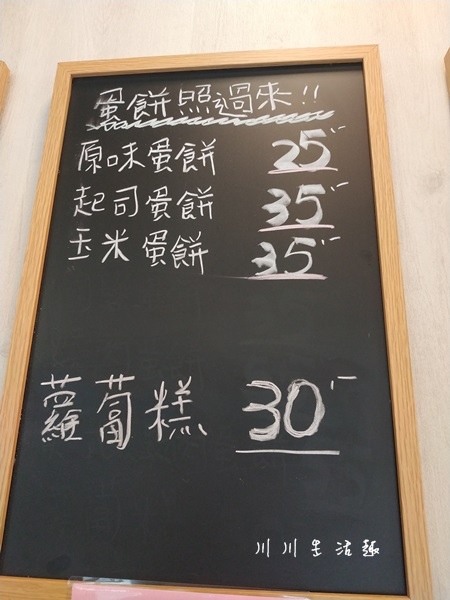 蛋餅照過來!!
原味蛋餅 25.-
起司蛋餅 35.-
玉米蛋餅 35.-
蘿蔔糕 30.-
川川生活趣